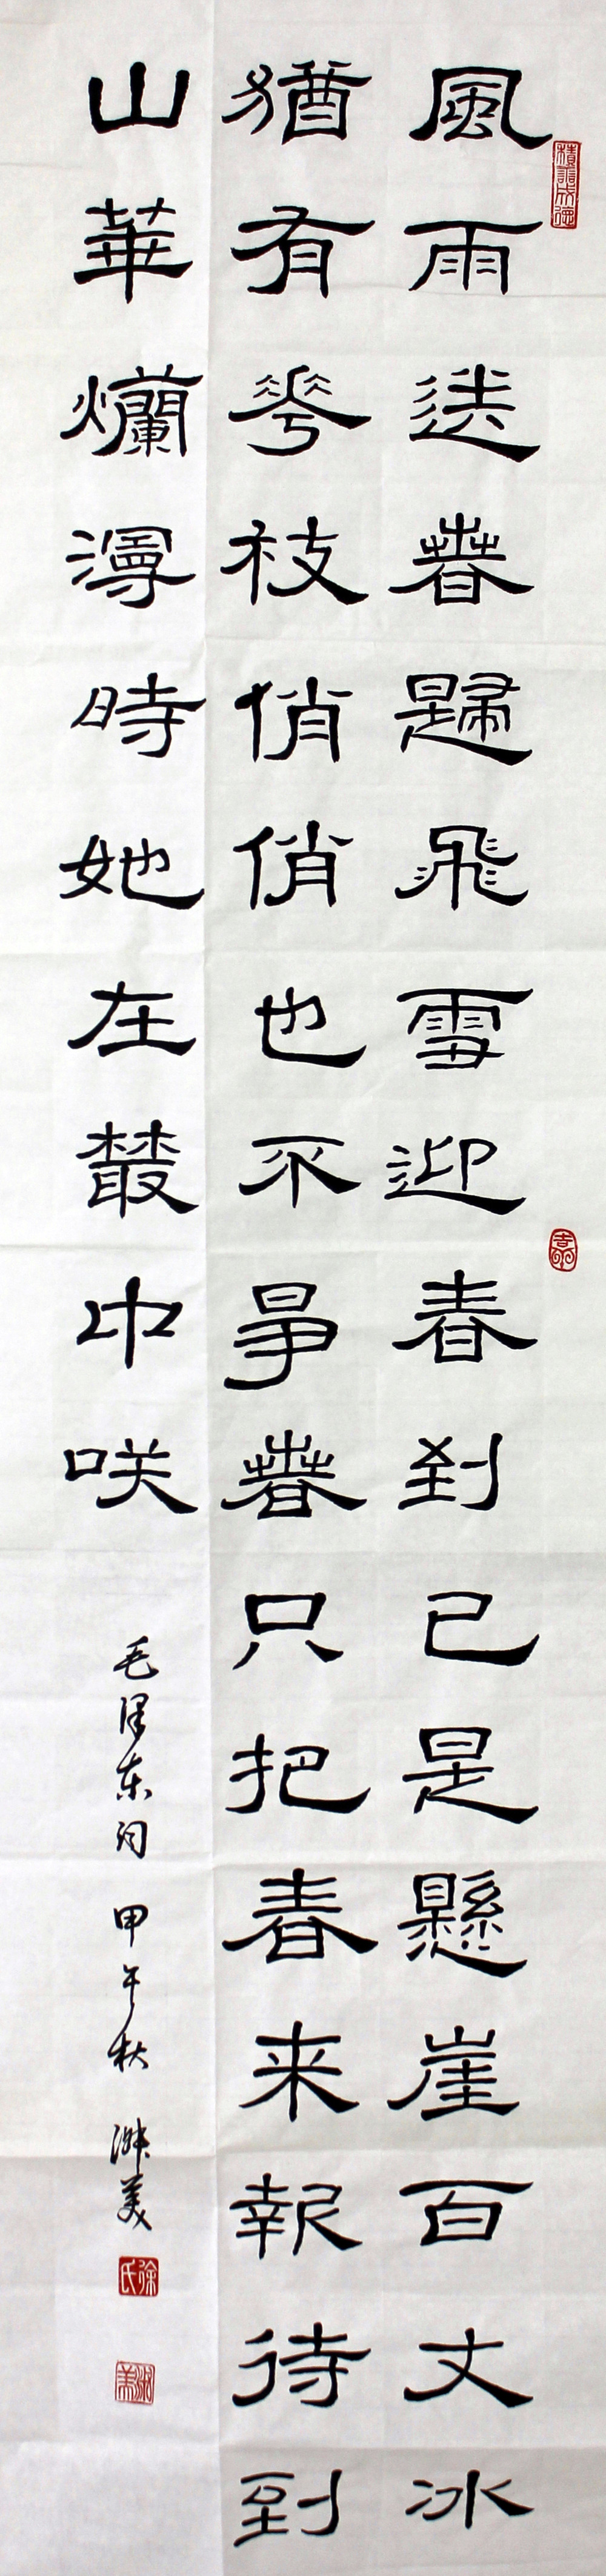 風雨送春歸飛雪迎春到已是懸崖百丈冰
猶有花枝俏俏也不爭春只把春来報待到
山華爛漫時她在叢中咲
毛泽东词 甲午秋 淑美
徐氏
淑美